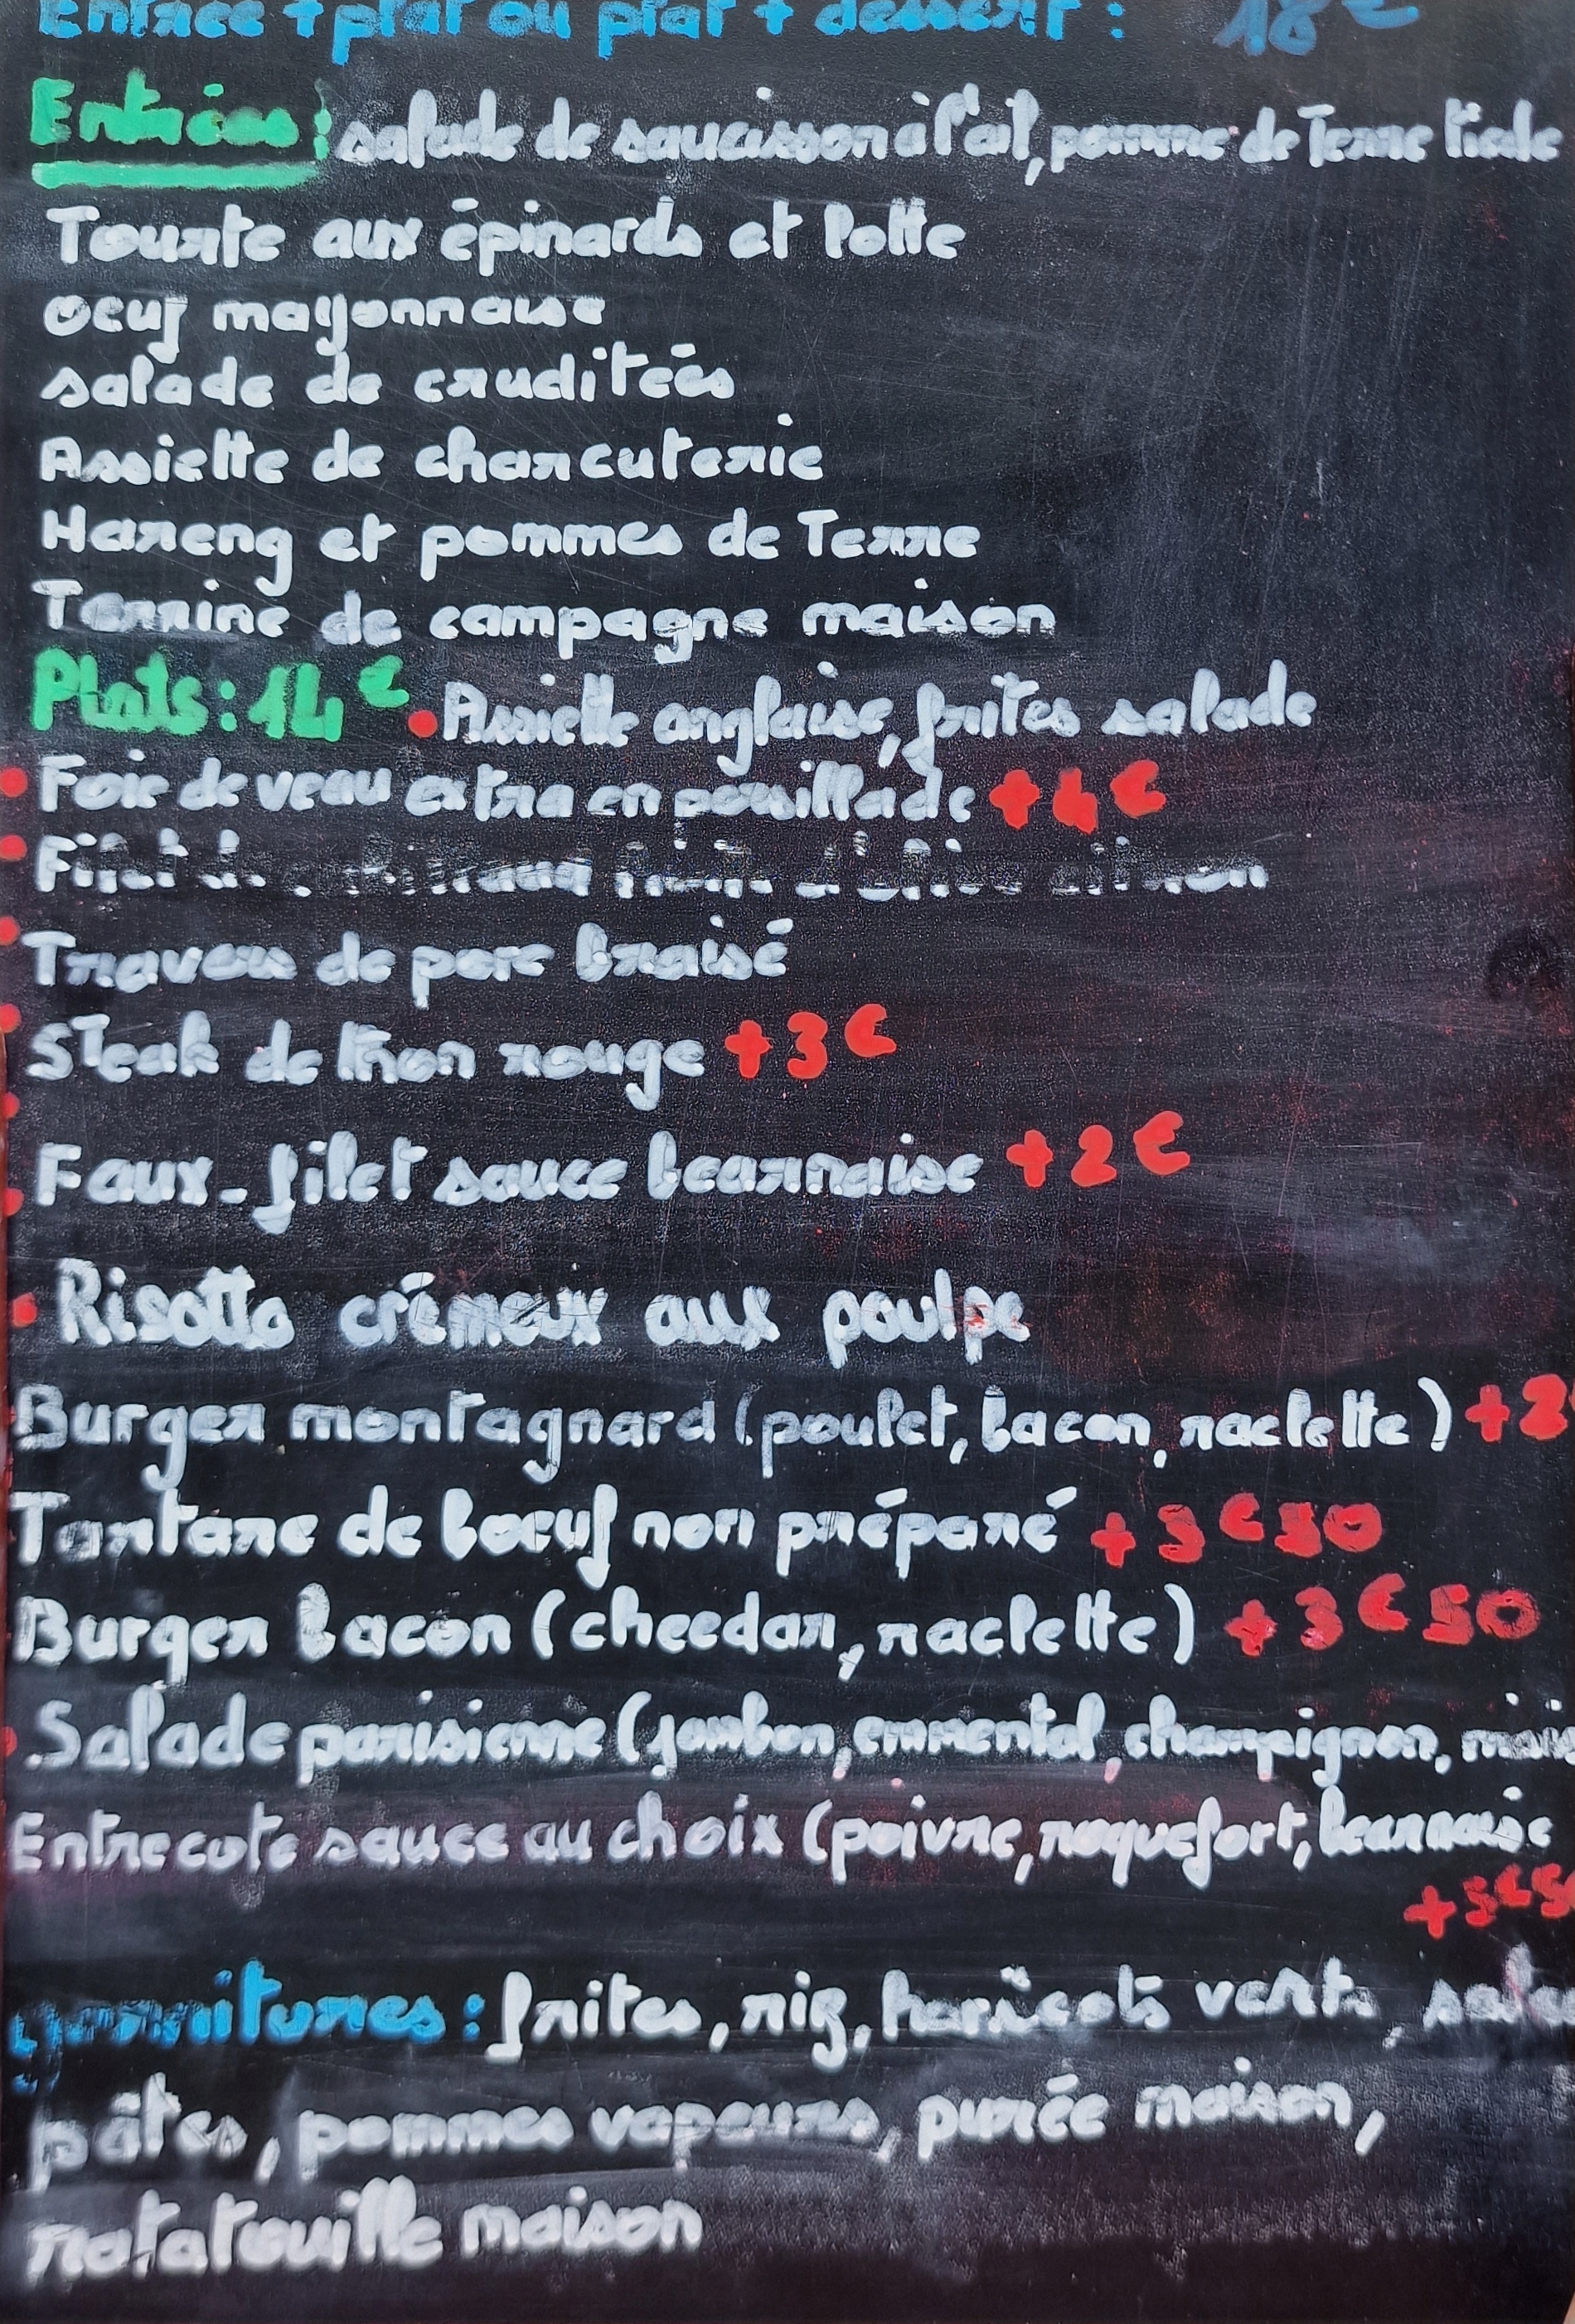 Entrée + plat ou plat + dessert : 18€
Entrées : salade de saucisson à l'ail, pomme de Terre tiède
Tourte aux épinards et
oeuf mayonnaise
salade de cruditées
Assiette de charcuterie
Hareng et pommes de Terre
Terrine de campagne maison
Plats : 14€ • Assiette anglaise, frites salade
• Foie de veau extra en persillade +4€
• Filet d'olive citron
• Travers de porc braisé
• Steak de thon rouge +3€
• Faux-filet sauce bearnaise +2€
• Risotto crémeux aux poulpe
Burger montagnard (poulet, bacon, raclette) +2€
Tartare de boeuf non préparé +3€50
Burger bacon (cheedar, raclette) +3€50
• Salade parisienne (jambon, emmental, champignon, maïs
Entrecote sauce au choix (poivre, roquefort, bearnaise
+3€50
garnitures : frites, riz, haricots verts, salade
pâtes, pommes vapeurs, purée maison,
ratatouille maison